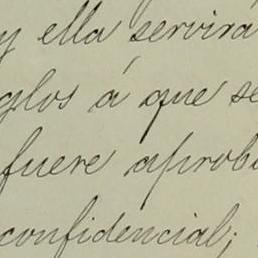 y ella servirá
glos á que se
fuere aprob
confidencial;